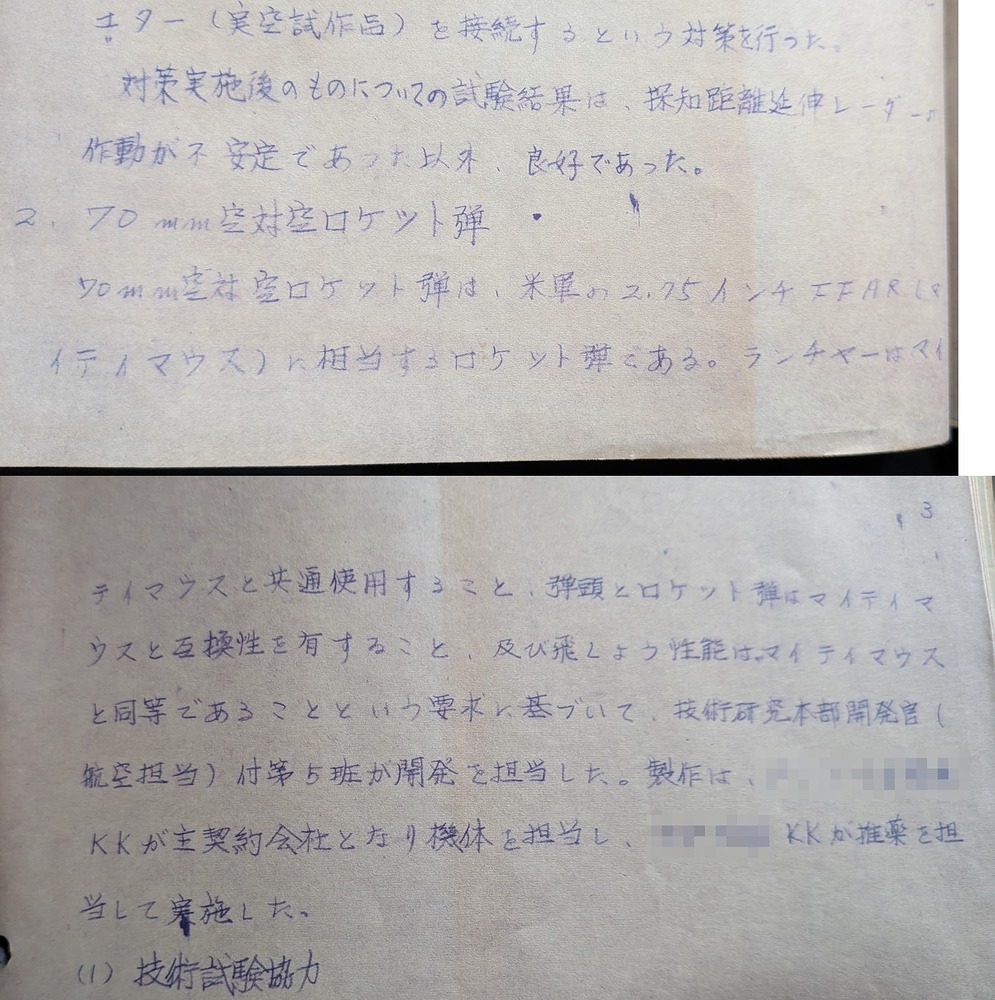 ニター（実空試作品）を接続するという対策を行った。
対策実施後のものについての試験結果は、探知距離延伸レーダーの
作動が不安定であった以外、良好であった。
2. 70mm空対空ロケット弾
70mm空対空ロケット弾は、米軍の2.75インチFFAR(マ
イティマウス)に相当するロケット弾である。ランチャーはマイ
3
ティマウスと共通使用すること、弾頭とロケット弾はマイティマ
ウスと互換性を有すること、及び飛しょう性能はマイティマウス
と同等であることという要求に基づいて、技術研究本部開発官(
航空担当)付第5班が開発を担当した。製作は、
KKが主契約会社となり機体を担当し、 KKが推薬を担
当して実施した。
(1) 技術試験協力